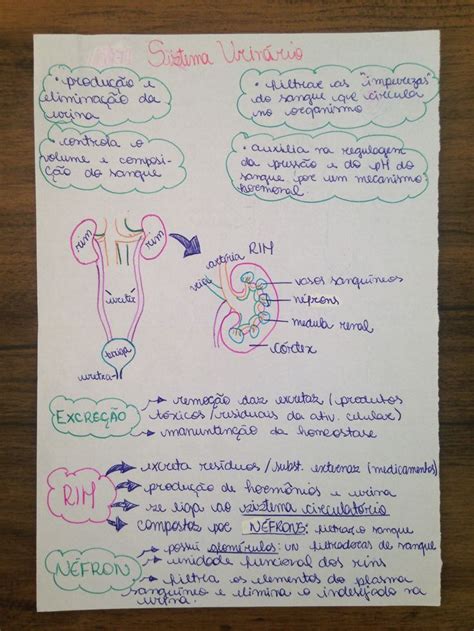 Sistema Urinário
• produção e
eliminação da
urina
• filtrar as "impurezas"
do sangue que circula
no organismo
• controla o
volume e composi-
ção do sangue
• auxilia na regulagem
da pressão e do pH do
sangue por um mecanismo
hormonal.
rim
rim
ureter
bexiga
uretra
RIM
artéria
veia
vasos sanguíneos
néfrons
medula renal
córtex
EXCREÇÃO
→ remoção das excretas (produtos
tóxicos/residuais da ativ. celular)
→ manuntenção da homeostase
RIM
excreta resíduos/subst. externas (medicamentos)
produção de hormônios e urina
se liga ao sistema circulatório
compostos por NÉFRONS: filtrar o sangue
NÉFRON
→ possui glomérulos: un filtradoras de sangue
→ unidade funcional dos rins
→ filtra os elementos do plasma
sanguíneo e elimina o indesejado na
urina.